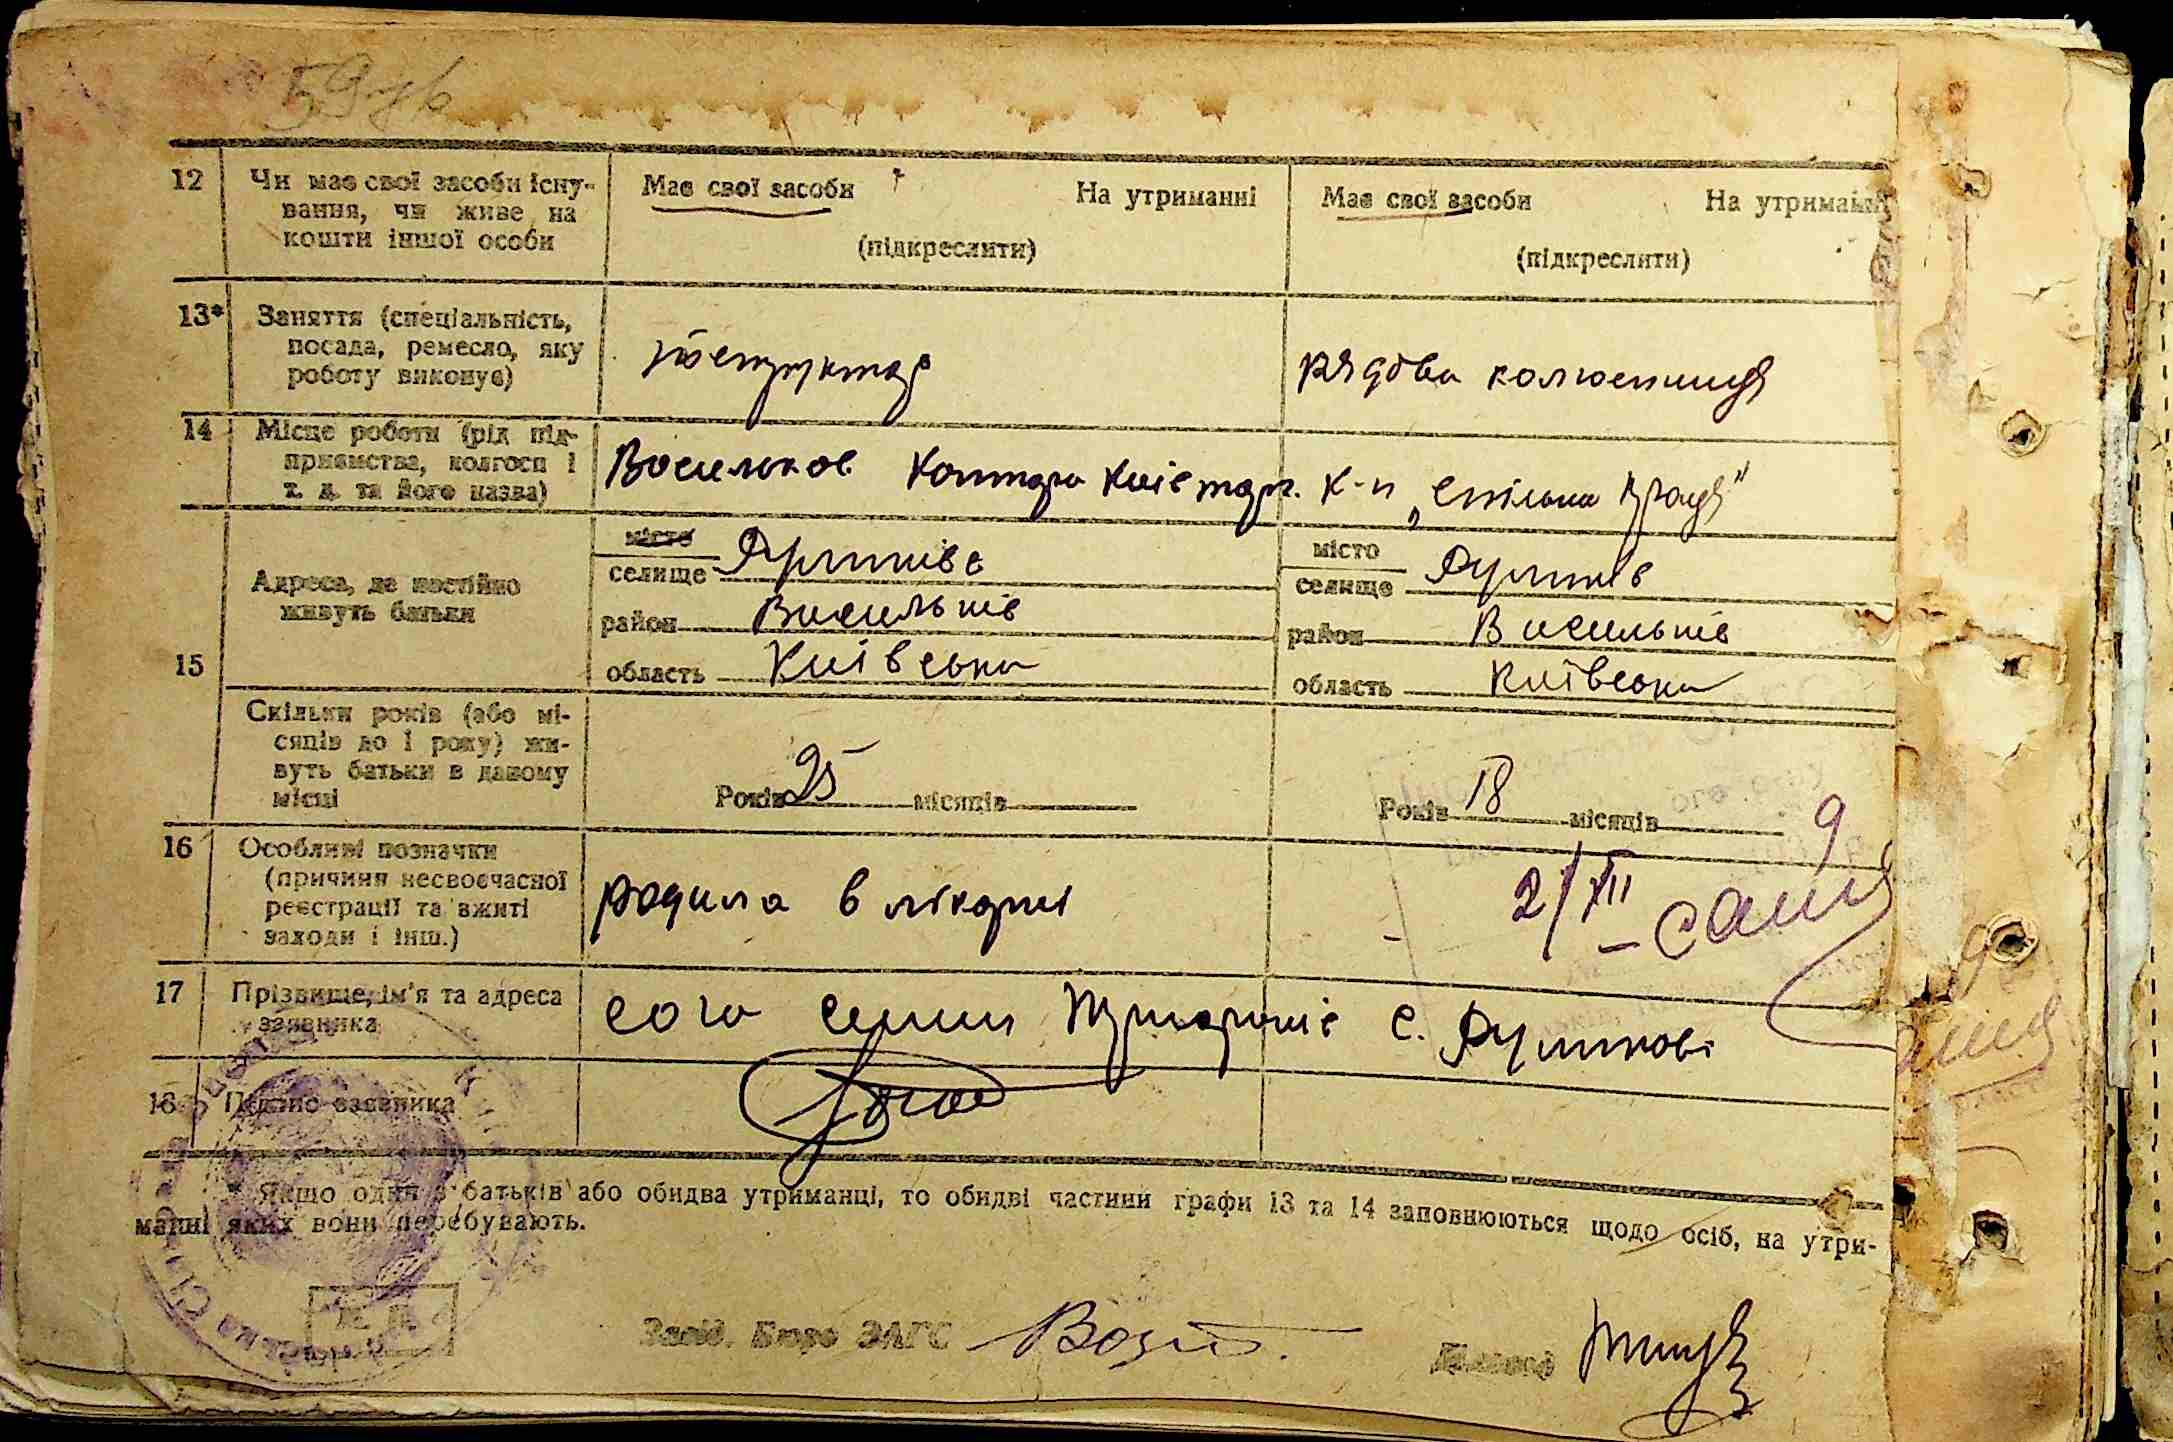 59
12 Чи має свої засоби існу-
вання, чи живе на
кошти іншої особи
Має свої засоби На утриманні
(підкреслити)
Має свої засоби На утриманні
(підкреслити)
13* Заняття (спеціальність,
посада, ремесло, яку
роботу виконує)
рядова колгоспниця
14 Місце роботи (рід під-
приємства, колгосп і
т. д. та його назва)
Васильков контора
к-п „Спільна праця"
15 Адреса, де постійно
живуть батьки
місто
селище
район Васильків
область Київська
місто
селище
район Васильків
область Київська
Скільки років (або мі-
сяців до 1 року) жи-
вуть батьки в даному
місці
Років 25 місяців
Років 18 місяців
16 Особливі позначки
(причини несвоєчасної
реєстрації та вжиті
заходи і інш.)
родила в лікарні
2/XII
17 Прізвище, ім'я та адреса
заявника
с.
18 Підпис заявника
* Якщо один з батьків або обидва утриманці, то обидві частини графи 13 та 14 заповнюються щодо осіб, на утри-
манні яких вони перебувають.
Завід. Бюро ЗАГС